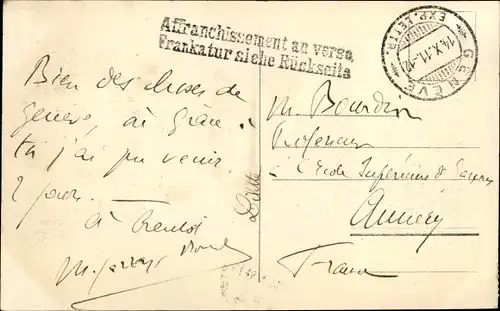 Affranchissement au verso,
Frankatur siehe Rückseite
GENÈVE
EXP. LETTR.
14.X.11.-12
Bien des choses de
genève, où grâce à
toi j'ai pu venir
2 jours.
à bientôt
M. Bourdin
Professeur
à l'Ecole Supérieure d
Annecy
France